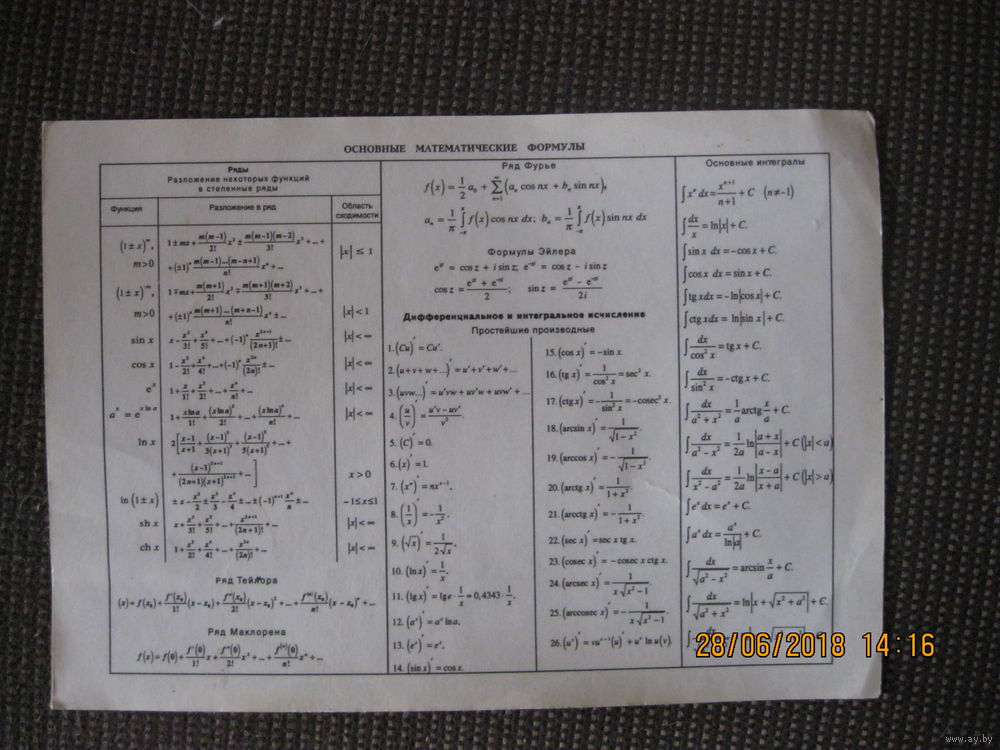 ОСНОВНЫЕ МАТЕМАТИЧЕСКИЕ ФОРМУЛЫ
Ряды
Разложение некоторых функций
в степенные ряды
Функция Разложение в ряд Область сходимости
(1 ± x)^m, m>0 1 ± mx + m(m−1)/2! x² ± m(m−1)(m−2)/3! x³ + ... + |x| ≤ 1
+ (±1)^n m(m−1)...(m−n+1)/n! x^n + ...
(1 ± x)^−m, m>0 1 ∓ mx + m(m+1)/2! x² ∓ m(m+1)(m+2)/3! x³ + ... + |x| < 1
+ (±1)^n m(m+1)...(m+n−1)/n! x^n ± ...
sin x x − x³/3! + x⁵/5! + ... + (−1)^n x^(2n+1)/(2n+1)! ± ... |x| < ∞
cos x 1 − x²/2! + x⁴/4! + ... + (−1)^n x^(2n)/(2n)! ± ... |x| < ∞
e^x 1 + x/1! + x²/2! + ... + x^n/n! + ... |x| < ∞
a^x = e^(x ln a) 1 + x ln a/1! + (x ln a)²/2! + ... + (x ln a)^n/n! + ... |x| < ∞
ln x 2[x−1/x+1 + (x−1)³/3(x+1)³ + (x−1)⁵/5(x+1)⁵ + ... +
+ (x−1)^(2n+1)/(2n+1)(x+1)^(2n+1) + ...] x > 0
ln(1 ± x) ± x − x²/2 ± x³/3 − x⁴/4 ± ... ± (−1)^(n+1) x^n/n ± ... −1≤x≤1
sh x x + x³/3! + x⁵/5! + ... + x^(2n+1)/(2n+1)! + ... |x| < ∞
ch x 1 + x²/2! + x⁴/4! + ... + x^(2n)/(2n)! + ... |x| < ∞
Ряд Тейлора
(x) = f(x₀) + f'(x₀)/1! (x − x₀) + f''(x₀)/2! (x − x₀)² + ... + f^(n)(x₀)/n! (x − x₀)^n + ...
Ряд Маклорена
f(x) = f(0) + f'(0)/1! x + f''(0)/2! x² + ... + f^(n)(0)/n! x^n + ...
Ряд Фурье
f(x) = 1/2 a₀ + ∑ n=1 ∞ (aₙ cos nx + bₙ sin nx),
aₙ = 1/π ∫ −π π f(x) cos nx dx; bₙ = 1/π ∫ −π π f(x) sin nx dx
Формулы Эйлера
e^zi = cos z + i sin z, e^−zi = cos z − i sin z
cos z = e^zi + e^−zi/2; sin z = e^zi − e^−zi/2i
Дифференциальное и интегральное исчисление
Простейшие производные
1. (Cu)' = Cu'.
2. (u + v + w + ...)' = u' + v' + w' + ...
3. (uvw...)' = u'vw + uv'w + uvw' + ...
4. (u/v)' = u'v − uv'/v².
5. (C)' = 0.
6. (x)' = 1.
7. (x^n)' = nx^(n−1).
8. (1/x)' = −1/x².
9. (√x)' = 1/2√x.
10. (ln x)' = 1/x.
11. (lg x)' = lg e · 1/x = 0,4343 · 1/x.
12. (a^x)' = a^x ln a.
13. (e^x)' = e^x.
14. (sin x)' = cos x.
15. (cos x)' = −sin x.
16. (tg x)' = 1/cos² x = sec² x.
17. (ctg x)' = −1/sin² x = −cosec² x.
18. (arcsin x)' = 1/√1−x².
19. (arccos x)' = −1/√1−x².
20. (arctg x)' = 1/1+x².
21. (arcctg x)' = −1/1+x².
22. (sec x)' = sec x tg x.
23. (cosec x)' = −cosec x ctg x.
24. (arcsec x)' = 1/x√x²−1
25. (arccosec x)' = −1/x√x²−1
26. (u^v)' = vu^(v−1)(u)' + u^v ln u(v).
Основные интегралы
∫x^n dx = x^(n+1)/n+1 + C (n ≠ −1)
∫dx/x = ln|x| + C.
∫sin x dx = −cos x + C.
∫cos x dx = sin x + C.
∫tg x dx = −ln|cos x| + C.
∫ctg x dx = ln|sin x| + C.
∫dx/cos² x = tg x + C.
∫dx/sin² x = −ctg x + C.
∫dx/a² + x² = 1/a arctg x/a + C.
∫dx/a² − x² = 1/2a ln|a + x/a − x| + C (|x| < a)
∫dx/x² − a² = 1/2a ln|x − a/x + a| + C (|x| > a)
∫e^x dx = e^x + C.
∫a^x dx = a^x/ln|a| + C
∫dx/√a² − x² = arcsin x/a + C.
∫dx/√a² + x² = ln|x + √x² + a²| + C.
28/06/2018 14:16
www.ay.by